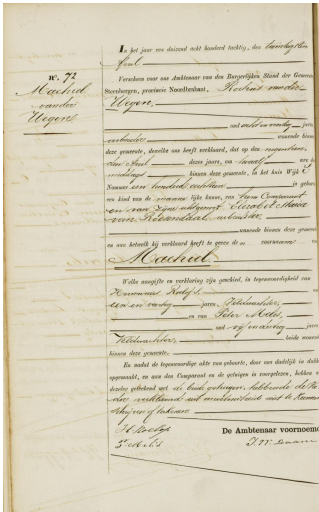 In het jaar een duizend acht honderd tachtig, den twintigsten
April
Verscheen voor ons Ambtenaar van den Burgerlijken Stand der Gemeen
Steenbergen, provincie Noordbrabant,
Nº. 72
Machiel
van der
Wegen
Wegen
oud
jaren
arbeider
wonende binnen
deze gemeente, dewelke ons heeft verklaard, dat op den negentienen
den April dezes jaars, om twaalf ure des
middags binnen deze gemeente, in het huis Wijk
Nummer een honderd achttien is gebore
een kind van de mannelijke kunne, van hem Comparant
en van zijne echtgenoot Elisabet Maria
van Rozendaal, arbeidster
wonende binnen deze gemeente
en aan hetwelk hij verklaard heeft te geven de voornaam
Machiel
Welke aangifte en verklaring zijn geschied, in tegenwoordigheid van
Hermanus
een en veertig jaren, Veldwachter,
en van Peter Melis,
oud vijf en dertig jaren
Veldwachter,
beide wonende
binnen deze gemeente.
En nadat de tegenwoordige akte van geboorte, door ons dadelijk in dubbel
opgemaakt, en aan den Comparant en de getuigen is voorgelezen, hebben w
dezelve geteekend met de beide getuigen, hebbende de Va
der verklaard uit
niet te kunnen
schrijven of teekenen
De Ambtenaar voornoemd
P. Melis